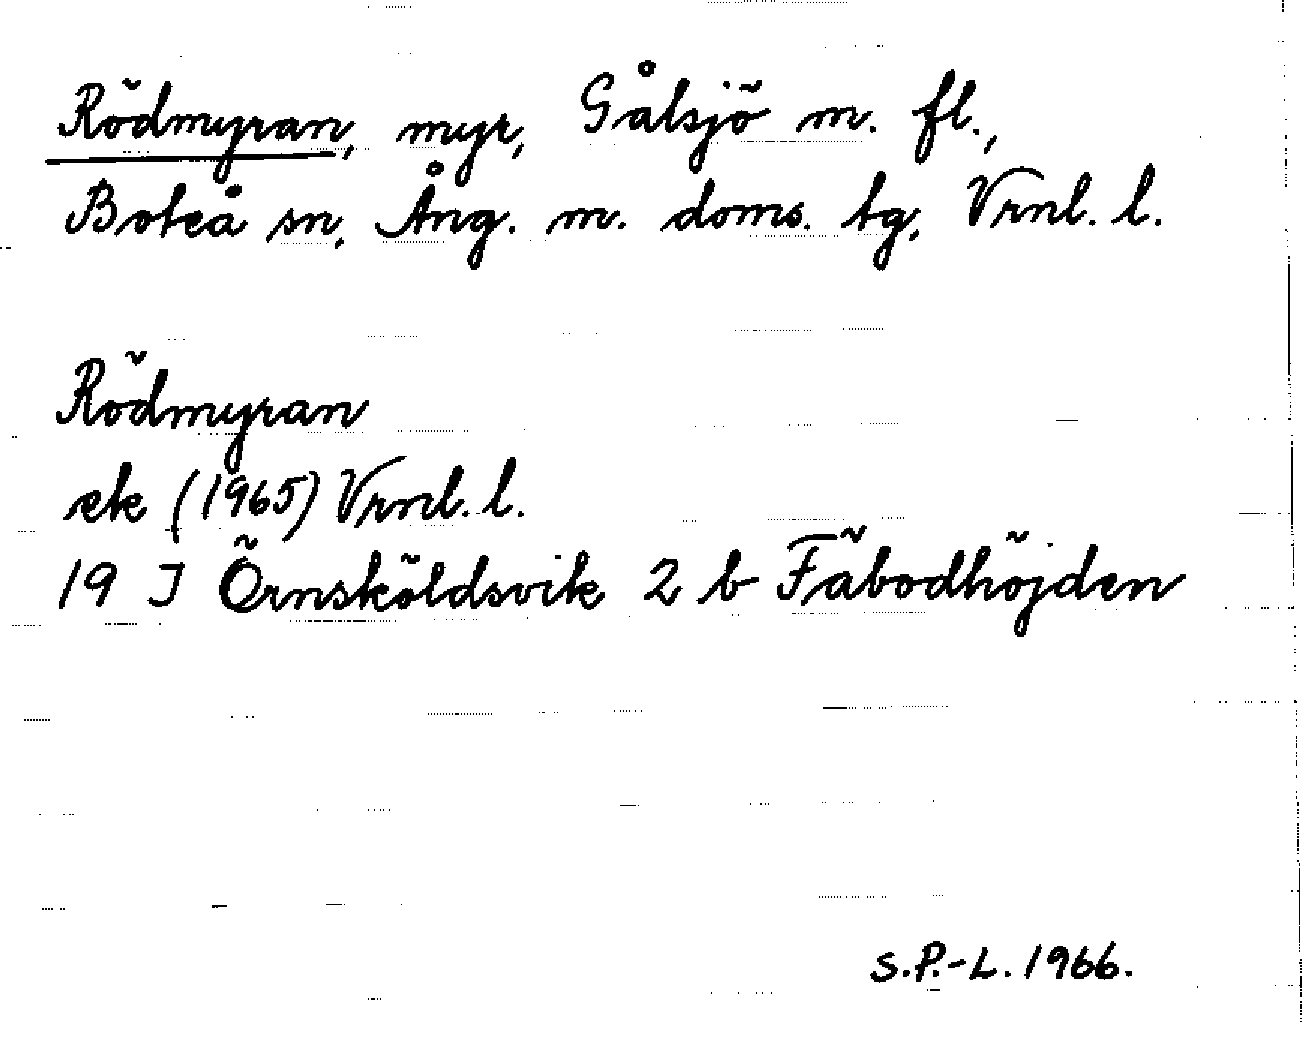 Rödmyran, myr, Gålsjö m. fl.,
Boteå sn, Ång. m. doms. tg, Vrnl. l.
Rödmyran
ek (1965) Vrnl. l.
19 J Örnsköldsvik 2 b Fäbodhöjden
S.P.-L. 1966.